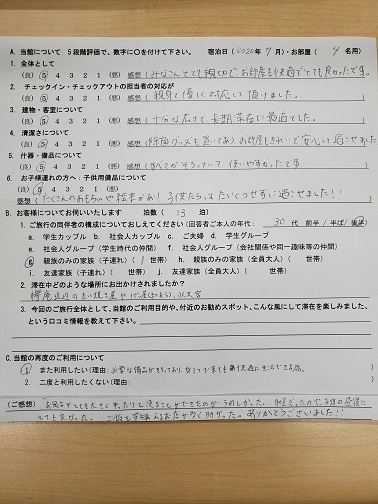 A. 当館について 5段階評価で、数字に〇を付けて下さい。 宿泊日(2020年 9月)・お部屋( 4名用)
1. 全体として
(良) 5 4 3 2 1 (悪) 感想(みなさんとても親切でお部屋も快適でとても良かったです。)
2. チェックイン・チェックアウトの担当者の対応が
(良) 5 4 3 2 1 (悪) 感想(親身で優しく対応して頂けました。)
3. 建物・客室について
(良) 5 4 3 2 1 (悪) 感想(十分な広さで、長期滞在に最適でした。)
4. 清潔さについて
(良) 5 4 3 2 1 (悪) 感想(掃除グッズも置いてあり お部屋もきれいで安心して過ごせました)
5. 什器・備品について
(良) 5 4 3 2 1 (悪) 感想(すべてがそろっていて 使いやすかったです)
6. お子様連れの方へ:子供用備品について
(良) 5 4 3 2 1 (悪)
感想(たくさんのおもちゃや絵本があり 子供たちはたいくつせずに過ごせました!!)
B. お客様についてお伺いいたします 泊数( 13 泊)
1. ご旅行の同伴者の構成についておしえてください(回答者ご本人の年代: 30代 前半/半ば/後半)
a. 学生カップル b. 社会人カップル c. ご夫婦 d. 学生グループ
e. 社会人グループ(学生時代の仲間) f. 社会人グループ(会社関係や同一趣味等の仲間)
g. 親族のみの家族(子連れ)( 1 世帯) h. 親族のみの家族(全員大人)( 世帯)
i. 友達家族(子連れ)( 世帯) j. 友達家族(全員大人)( 世帯)
2. 滞在中どのような場所にお出かけされましたか?
3. 今回のご旅行全体として、当館のご利用目的や、付近のお勧めスポット、こんな風にして滞在を楽しみました、
という口コミ情報を教えて下さい。
C. 当館の再度のご利用について
1) また利用したい(理由:必要な備品がそろっており 安心して来ても快適に生活できる為。)
2) 二度と利用したくない(理由: )
(ご感想)
ありがとうございました!!